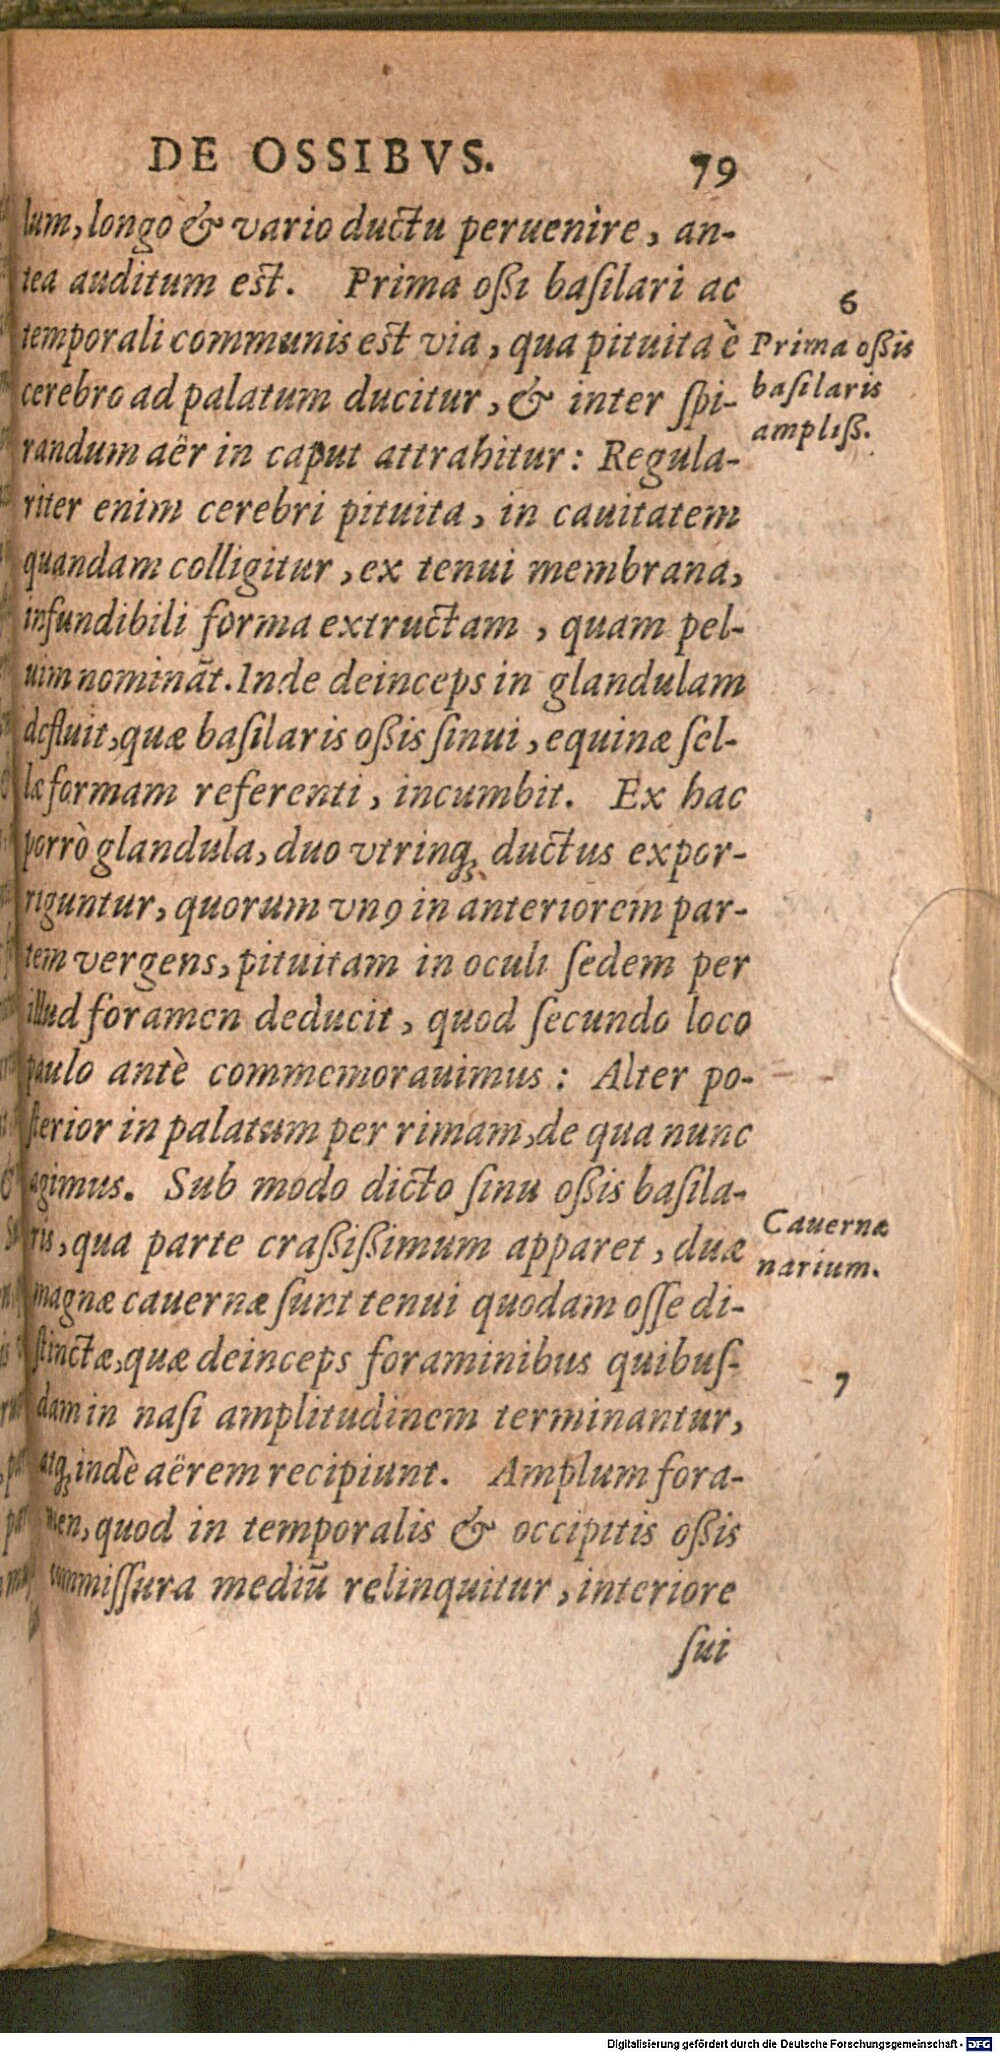 DE OSSIBVS. 79
lum, longo & vario ductu peruenire, an-
tea auditum est. Prima oßi baſilari ac
temporali communis est via, qua pituita è
cerebro ad palatum ducitur, & inter ſpi-
randum aër in caput attrahitur: Regula-
riter enim cerebri pituita, in cauitatem
quandam colligitur, ex tenui membrana,
infundibili forma extructam, quam pel-
uim nominãt. Inde deinceps in glandulam
defluit, quæ baſilaris oßis ſinui, equinæ ſel-
læ formam referenti, incumbit. Ex hac
porrò glandula, duo vtrinq; ductus expor-
riguntur, quorum vnꝰ in anteriorem par-
tem vergens, pituitam in oculi ſedem per
illud foramen deducit, quod ſecundo loco
paulo antè commemorauimus: Alter po-
ſterior in palatum per rimam, de qua nunc
agimus. Sub modo dicto ſinu oßis baſila-
ris, qua parte craßißimum apparet, duæ
magnæ cauernæ ſunt tenui quodam oſſe di-
ſtinctæ, quæ deinceps foraminibus quibuſ-
dam in naſi amplitudinem terminantur,
atq; indè aërem recipiunt. Amplum fora-
men, quod in temporalis & occipitis oßis
commiſſura mediũ relinquitur, interiore
ſui
6
Prima oßis
baſilaris
ampliß.
Cauernæ
narium.
7
Digitalisierung gefördert durch die Deutsche Forschungsgemeinschaft - DFG